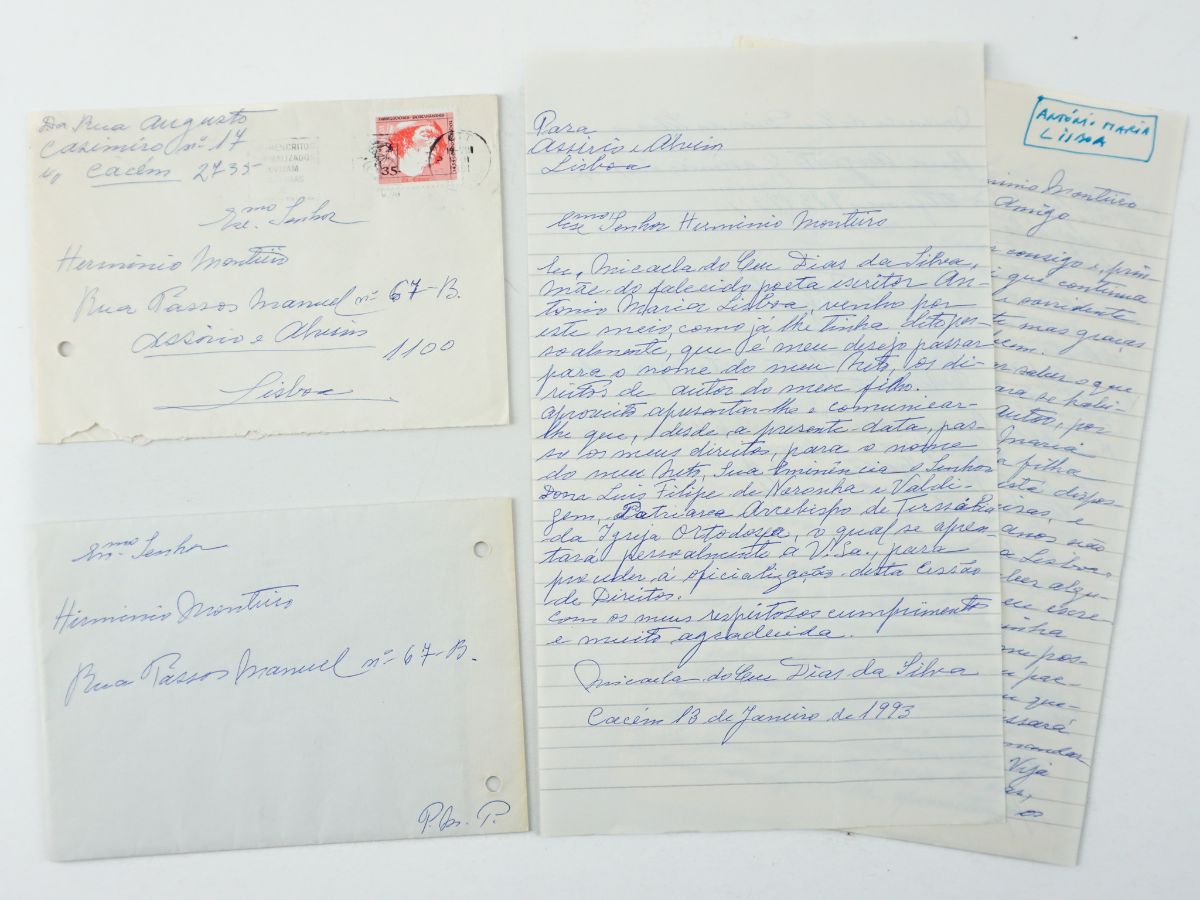 Da Rua Augusto
Casimiro nº 17
Cacém 2735
35-
Exmo. Senhor
Herminio Monteiro
Rua Passos Manuel nº 67-B.
Assirio e Alvim
1100
Lisboa
Exmo. Senhor
Herminio Monteiro
Rua Passos Manuel nº 67-B.
P.M.P.
Para
Assirio e Alvim
Lisboa
Exmo Senhor Herminio Monteiro
Eu, Micaela do Ceu Dias da Silva,
mãe do falecido poeta escritor An-
tonio Maria Lisboa, venho por
este meio, como já lhe tinha dito pes-
soalmente, que é meu desejo passar
para o nome do meu Neto, os di-
reitos de autor do meu filho.
Aproveito apresentar-lhe e comunicar-
lhe que, desde a presente data, pas-
so os meus direitos, para o nome
do meu Neto, Sua Eminência o Senhor
Dom Luis Filipe de Noronha e Valdi-
gem, Patriarca Arrebispo de
da Igrija Ortodoxa, o qual se apren-
tará pessoalmente a V. Sa., para
proceder á oficialização desta Cessão
de Direitos.
Com os meus respeitosos cumprimentos
e muito agradecida.
Micaela do Ceu Dias da Silva
Cacém 13 de Janeiro de 1993
ANTÓNIO MARIA
LISBOA
Monteiro
Amigo
consigo e, prin-
que continua
e ouvidente
mas graças
bem.
saber o que
para se publi-
autor, por
Maria
filha
está dispos-
e
anos não
a Lisboa,
ber algu-
eu escre-
inha
me pos-
que-
issará
mandar
Vija
os